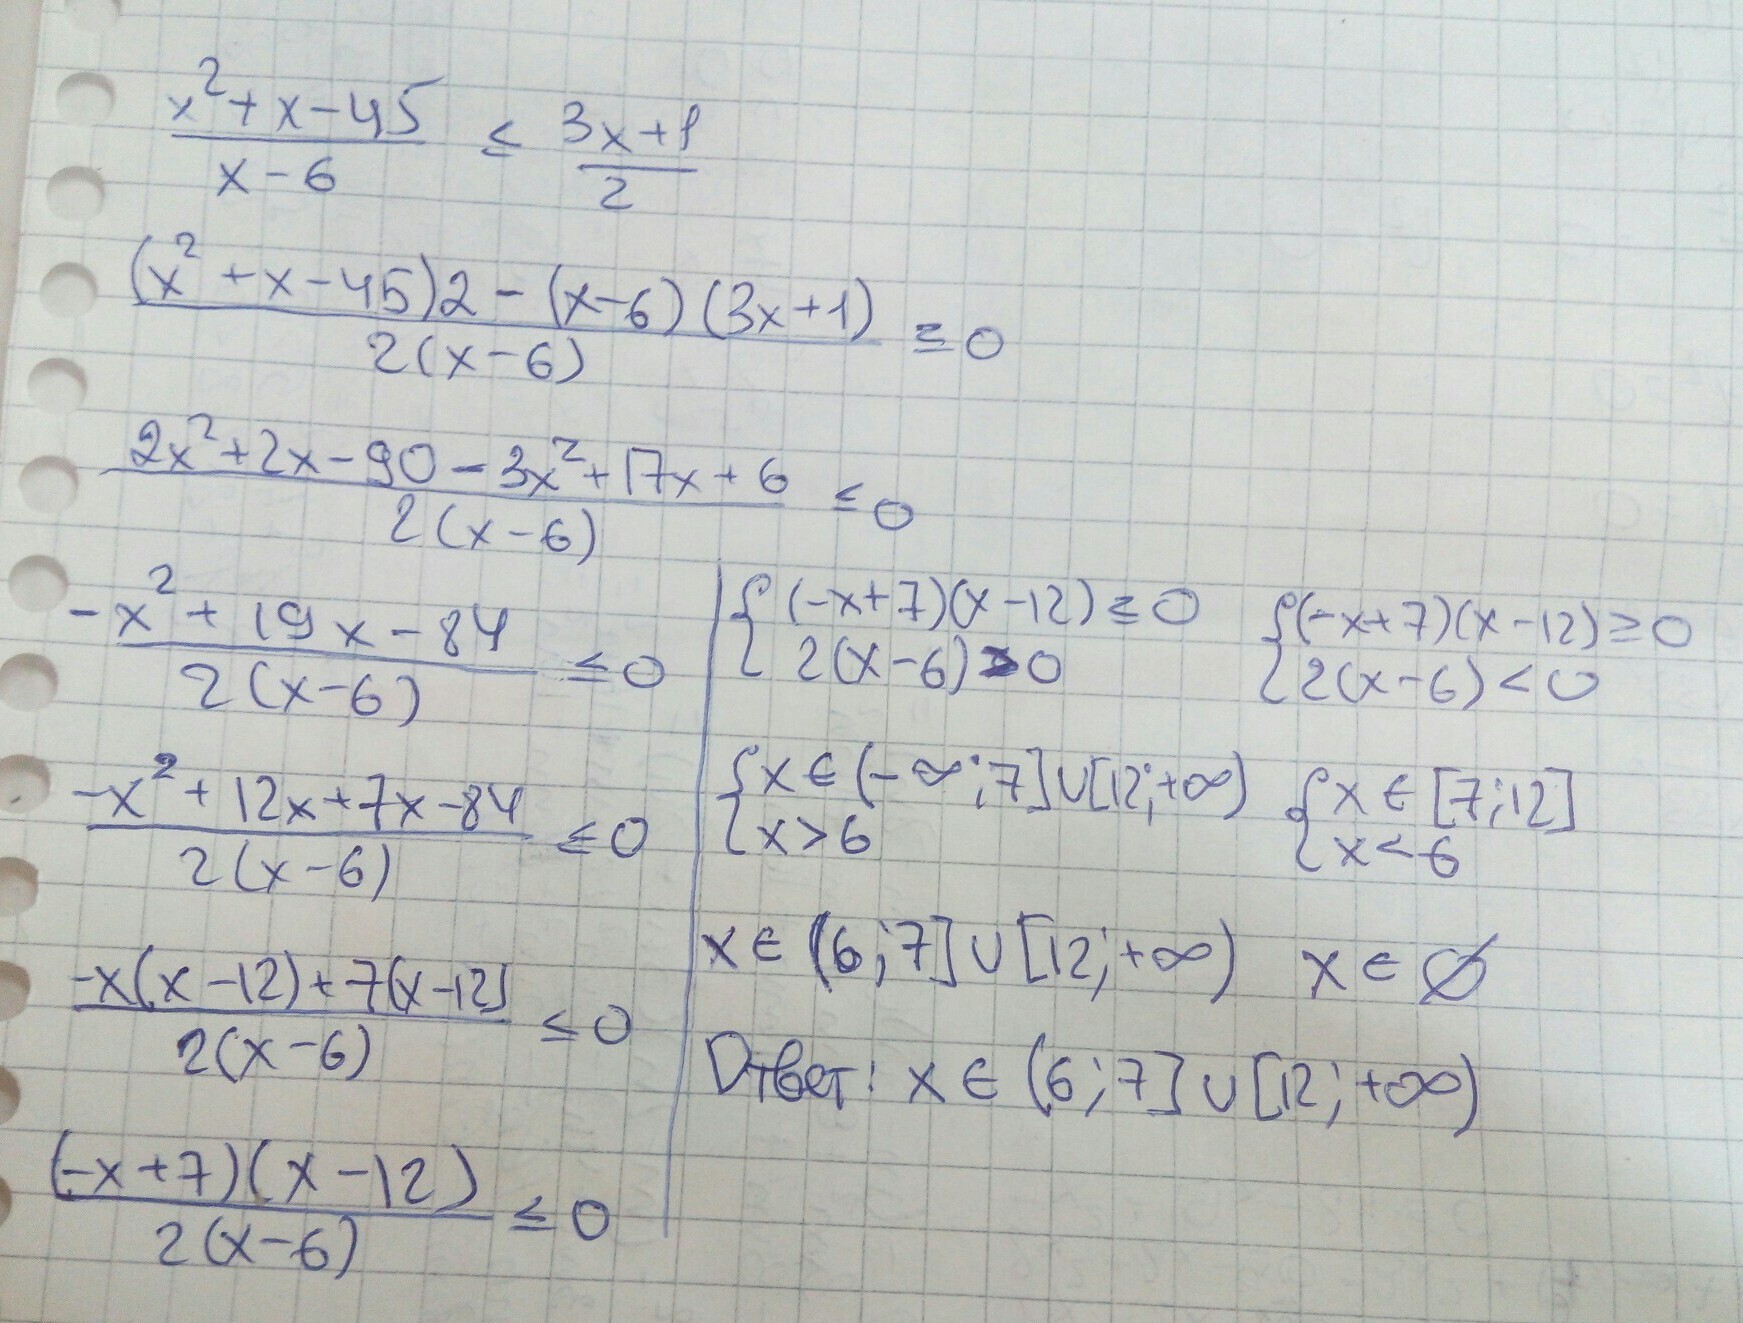 (x²+x-45)/(x-6) ≤ (3x+1)/2
((x²+x-45)2-(x-6)(3x+1))/(2(x-6)) ≤ 0
(2x²+2x-90-3x²+17x+6)/(2(x-6)) ≤ 0
(-x²+19x-84)/(2(x-6)) ≤ 0
(-x²+12x+7x-84)/(2(x-6)) ≤ 0
(-x(x-12)+7(x-12))/(2(x-6)) ≤ 0
((-x+7)(x-12))/(2(x-6)) ≤ 0
{ (-x+7)(x-12) ≤ 0
2(x-6) > 0
{ (-x+7)(x-12) ≥ 0
2(x-6) < 0
{ x ∈ (-∞;7]∪[12;+∞)
x > 6
{ x ∈ [7;12]
x < 6
x ∈ (6;7]∪[12;+∞) x ∈ ∅
Ответ: x ∈ (6;7]∪[12;+∞)